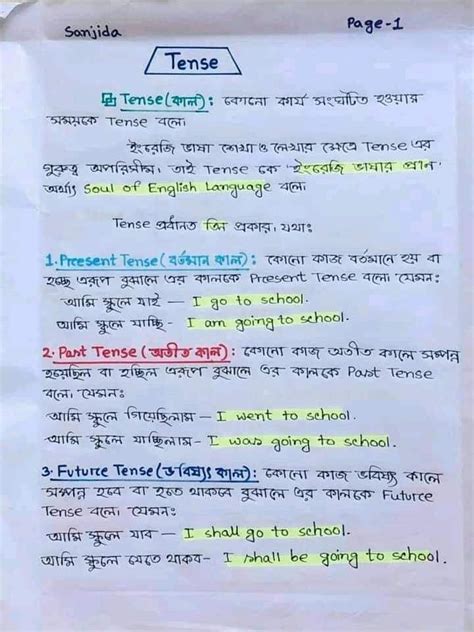 Sanjida
Page-1
Tense
Tense (কাল): কোনো কার্য সংঘটিত হওয়ার
সময়কে Tense বলে।
ইংরেজি ভাষা শেখা ও লেখার ক্ষেত্রে Tense এর
গুরুত্ব অপরিসীম, তাই Tense কে 'ইংরেজি ভাষার প্রান'
অর্থাৎ Soul of English Language বলে।
Tense প্রধানত তিন প্রকার, যথাঃ
1. Present Tense (বর্তমান কাল): কোনো কাজ বর্তমানে হয় বা
হচ্ছে এরূপ বুঝালে এর কালকে Present Tense বলে। যেমন:
আমি স্কুলে যাই — I go to school.
আমি স্কুলে যাচ্ছি - I am going to school.
2. Past Tense (অতীত কাল): কোনো কাজ অতীত কালে সম্পন্ন
হয়েছিল বা হচ্ছিল এরূপ বুঝালে এর কালকে Past Tense
বলে। যেমন:
আমি স্কুলে গিয়েছিলাম — I went to school.
আমি স্কুলে যাচ্ছিলাম — I was going to school.
3. Future Tense (ভবিষ্যৎ কাল): কোনো কাজ ভবিষ্যৎ কালে
সম্পন্ন হবে বা হতে থাকবে বুঝালে এর কালকে Future
Tense বলে। যেমন:
আমি স্কুলে যাব — I shall go to school.
আমি স্কুলে যেতে থাকব - I shall be going to school.